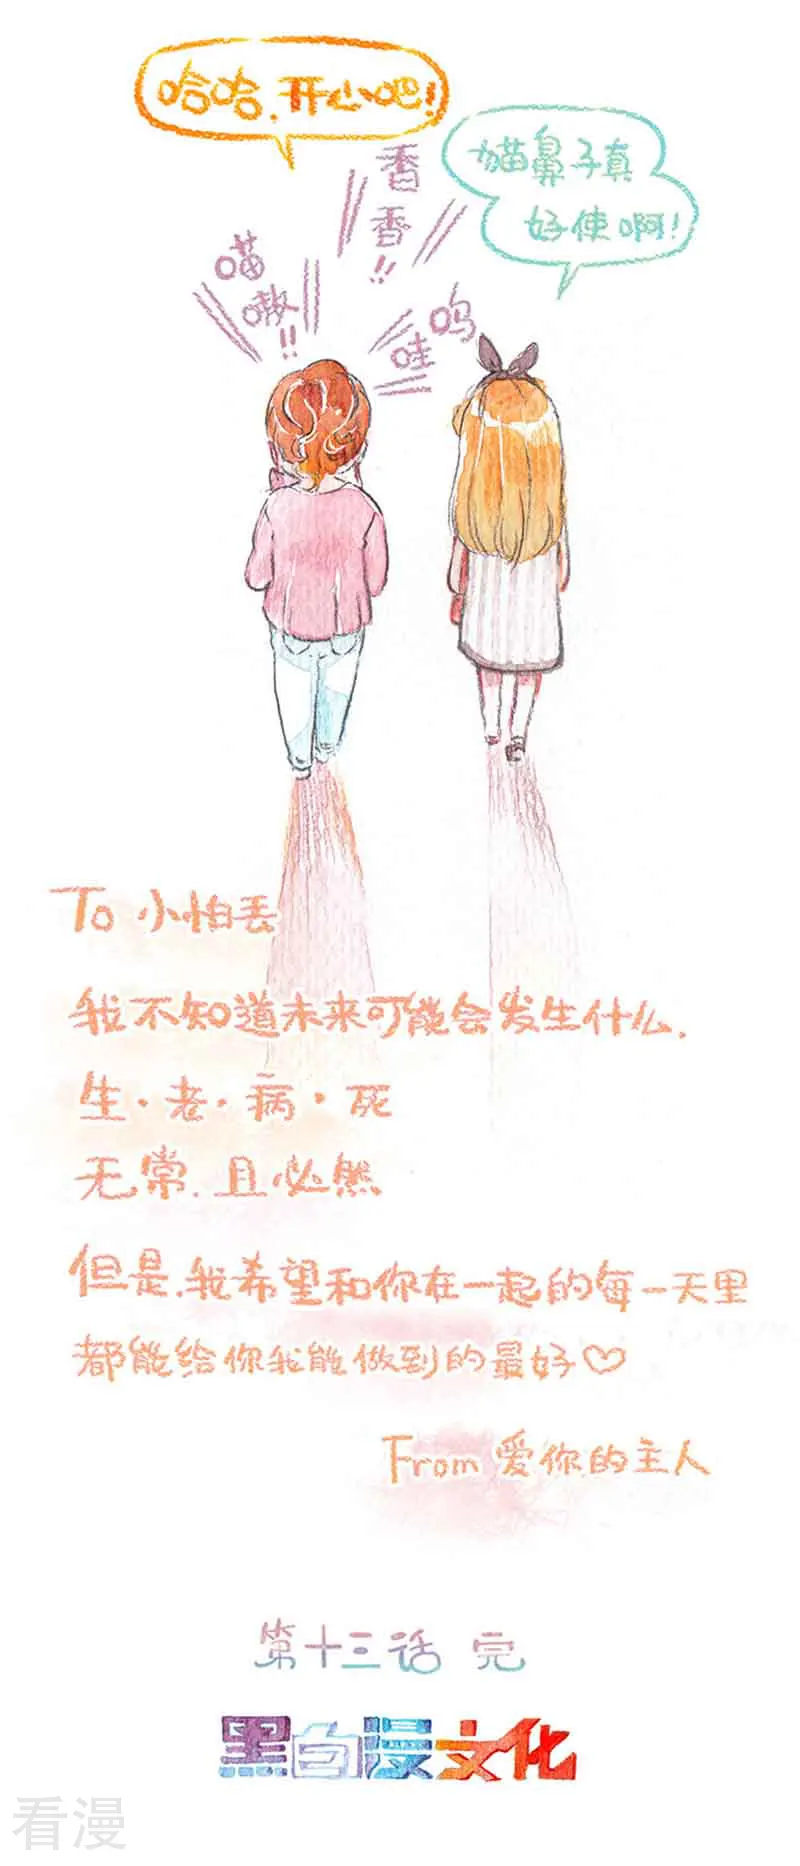 哈哈,开心吧!
猫鼻子真
好使啊!
香
香
!!
喵
嗷
!!
呜
哇
To 小怕丢
我不知道未来可能会发生什么.
生·老·病·死
无常.且必然
但是.我希望和你在一起的每一天里
都能给你我能做到的最好♡
From 爱你的主人
第十三话 完
黑白漫文化
看漫